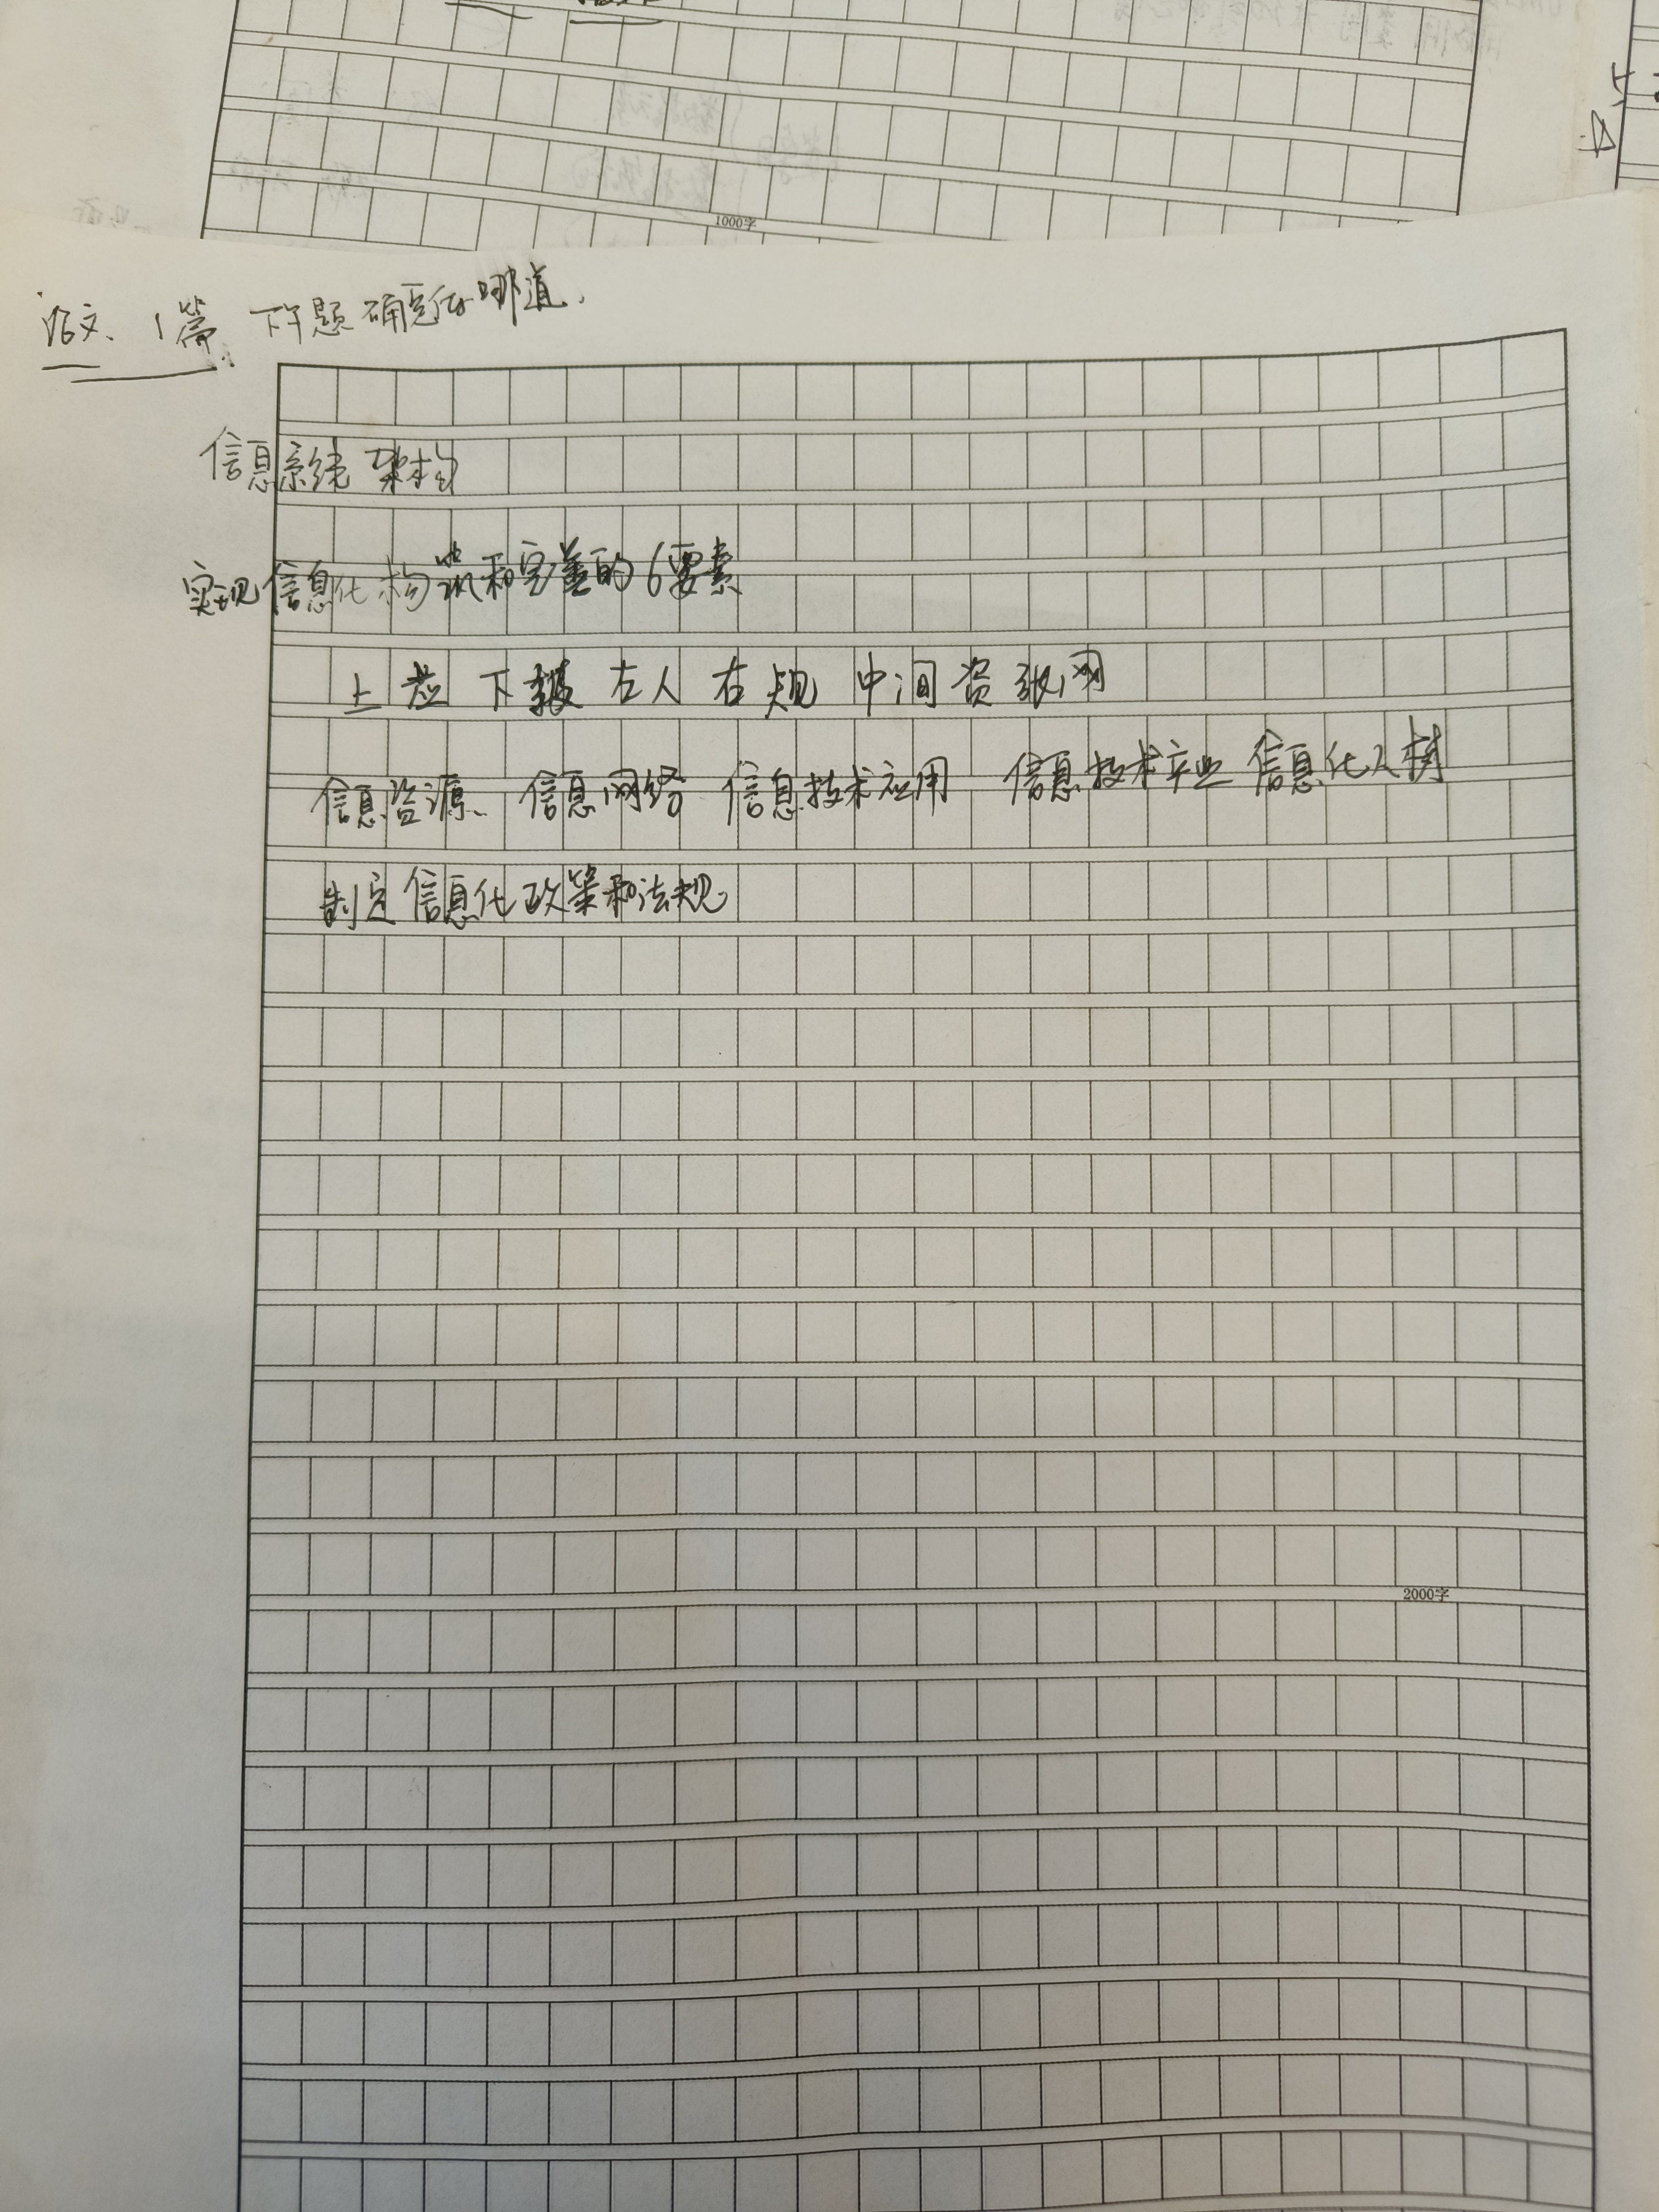 1000字
论文、1篇、下午题确定好哪道、
信息系统架构
实现信息化构筑和完善的6要素
上应 下技 左人 右规 中间资源网
信息资源、信息网络 信息技术应用 信息技术产业 信息化人才
制定信息化政策和法规
2000字